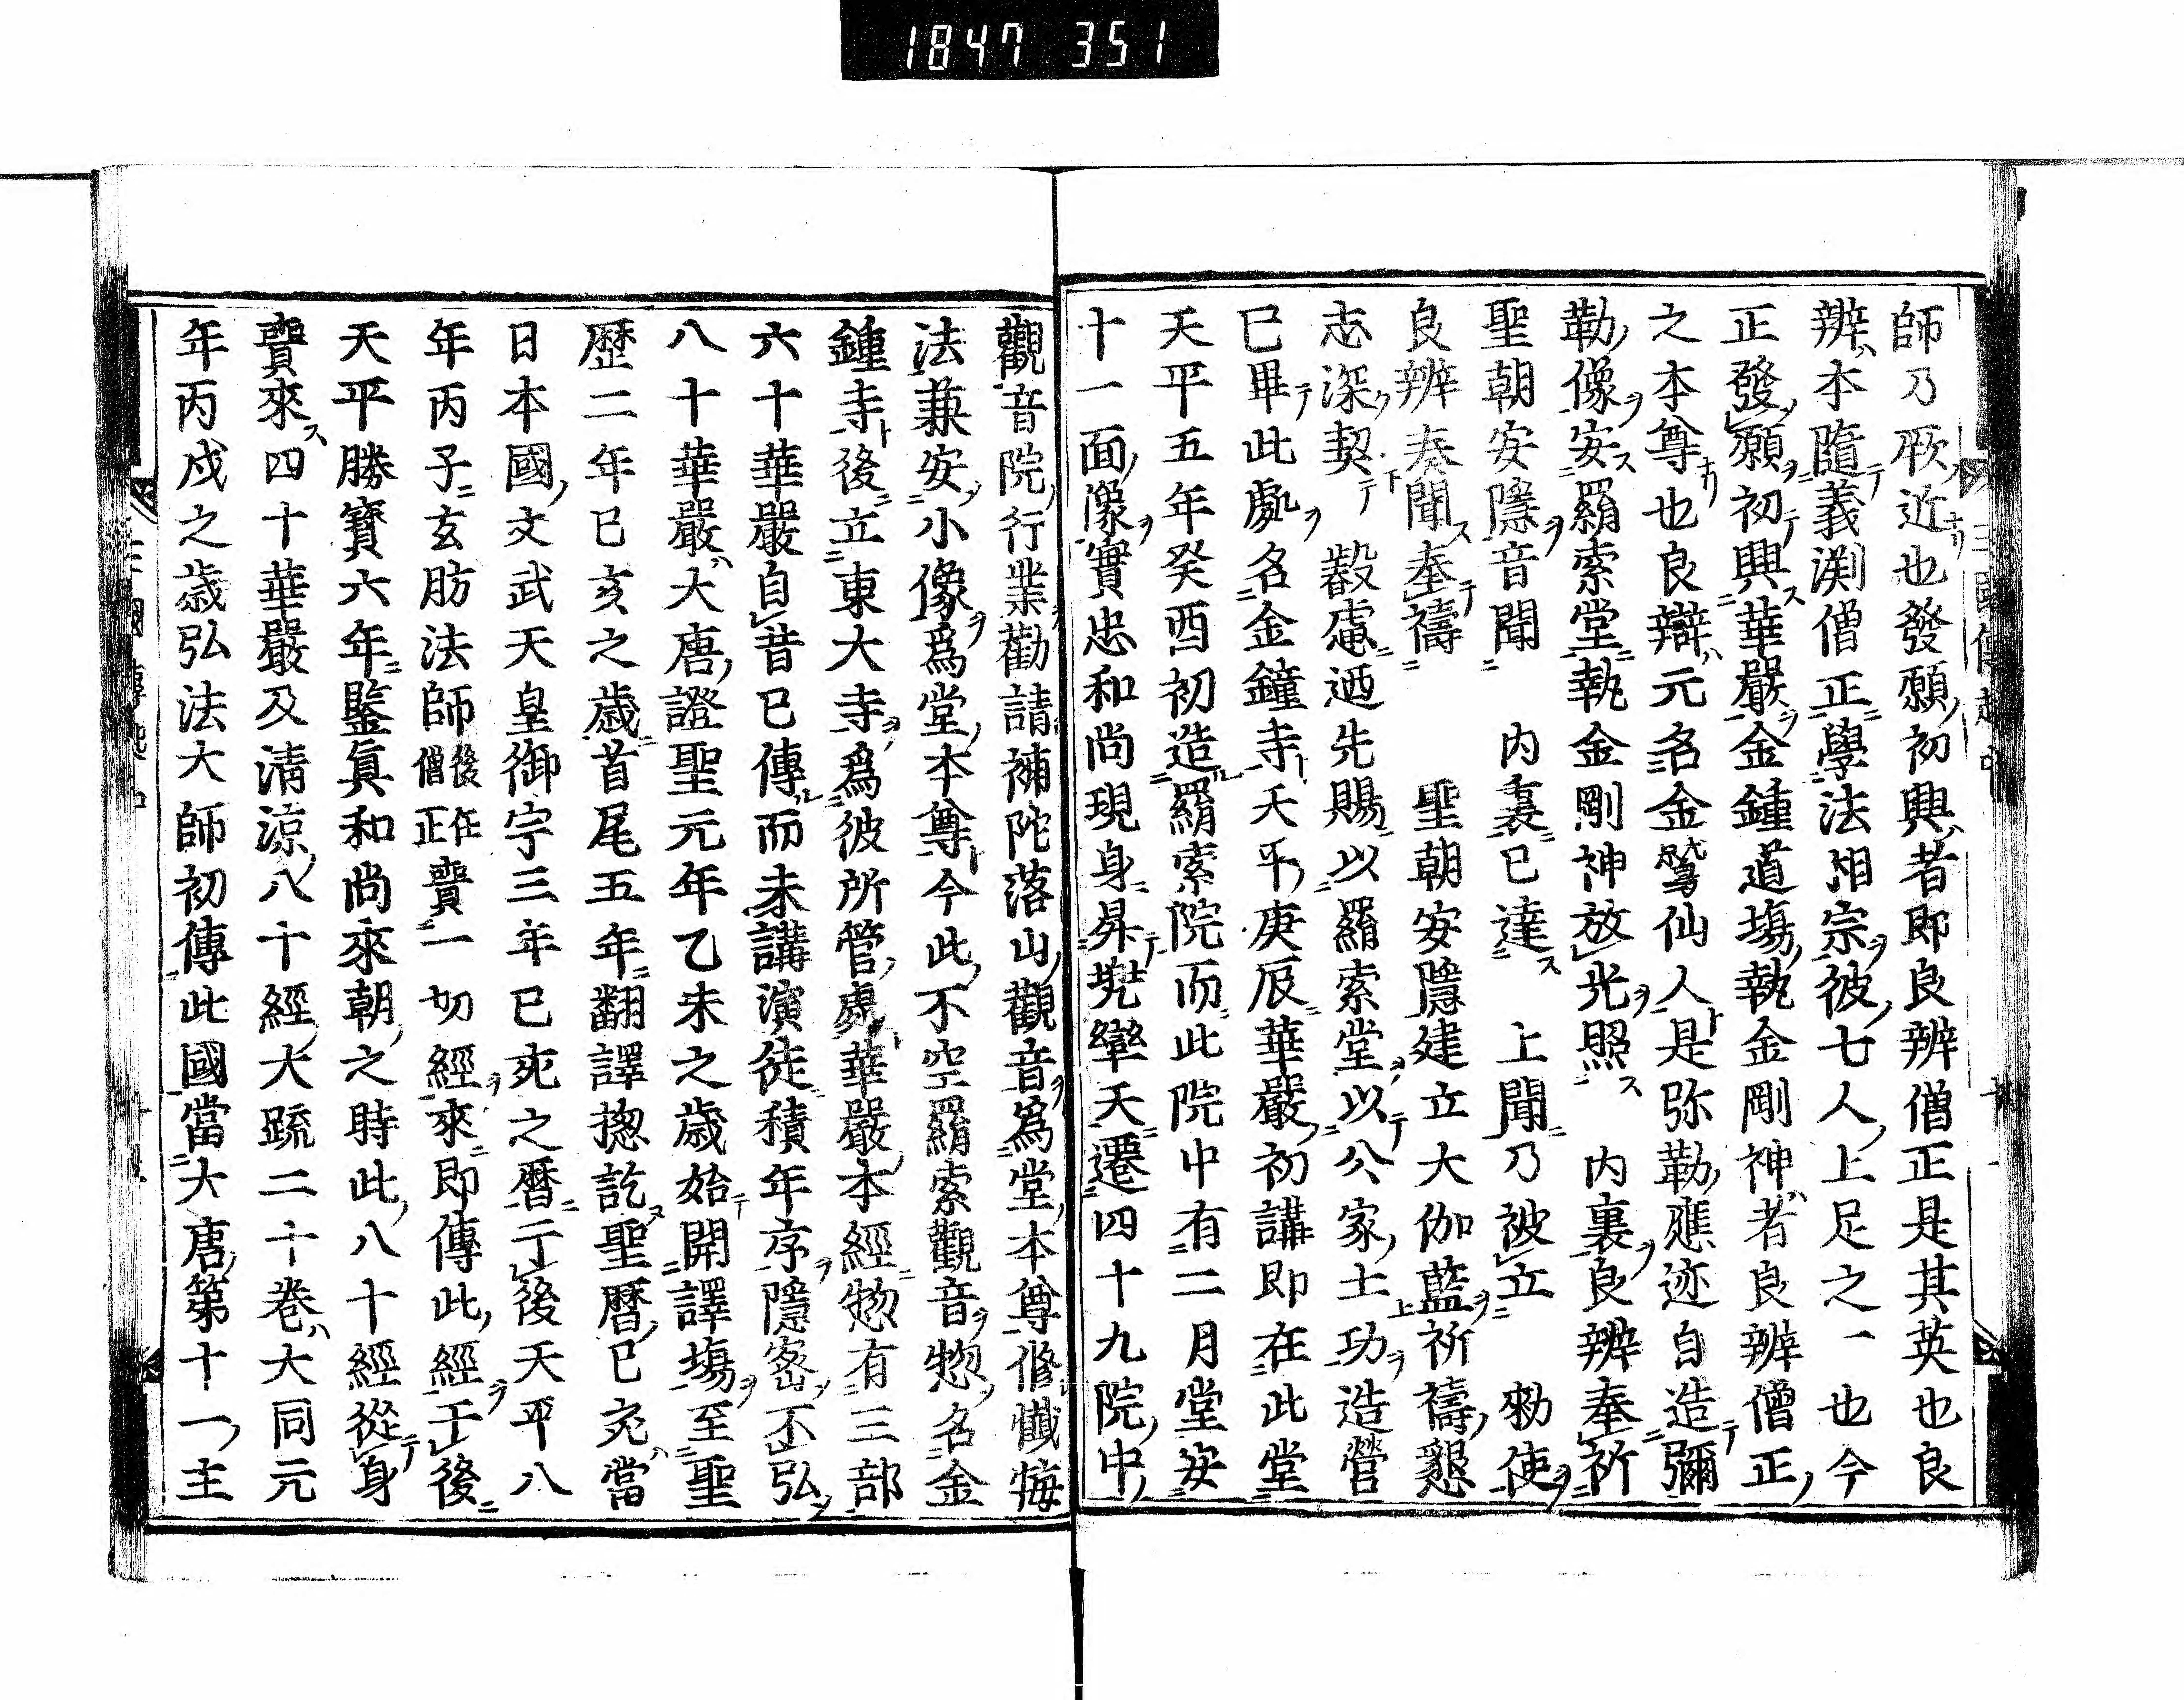 1847 351
師乃厥近也發願初興者即良辨僧正是其英也良
辨本隨義渕僧正學法相宗彼七人上足之一也今
正發願初興華嚴金鍾道塲執金剛神者良辨僧正
之本尊也良辯元名金鷲仙人是弥勒應迹自造彌
勒像安羂索堂執金剛神放光照 内裏良辨奉祈
聖朝安隱音聞 内裏已達 上聞乃被立 勑使
良辨奏聞奉禱 聖朝安隱建立大伽藍祈禱懇
志深契 叡慮迺先賜以羂索堂以公家土功造營
已畢此處名金鐘寺天平庚辰華嚴初講即在此堂
天平五年癸酉初造羂索院而此院中有二月堂安
十一面像實忠和尚現身昇兠率天遷四十九院中
觀音院行業勸請補陀落山觀音爲堂本尊修懺悔
法兼安小像爲堂本尊今此不空羂索觀音惣名金
鍾寺後立東大寺爲彼所管處華嚴本經惣有三部
六十華嚴自昔已傳而未講演徒積年序隱密不弘
八十華嚴大唐證聖元年乙未之歲始開譯塲至聖
歷二年已亥之歲首尾五年翻譯揔訖聖曆已亥當
日本國文武天皇御宇三年已亥之曆亍後天平八
年丙子玄肪法師後任僧正賷一切經來即傳此經于後
天平勝寶六年鑒眞和尚來朝之時此八十經從身
賷來四十華嚴及清凉八十經大疏二十卷大同元
年丙戌之歲弘法大師初傳此國當大唐第十一主